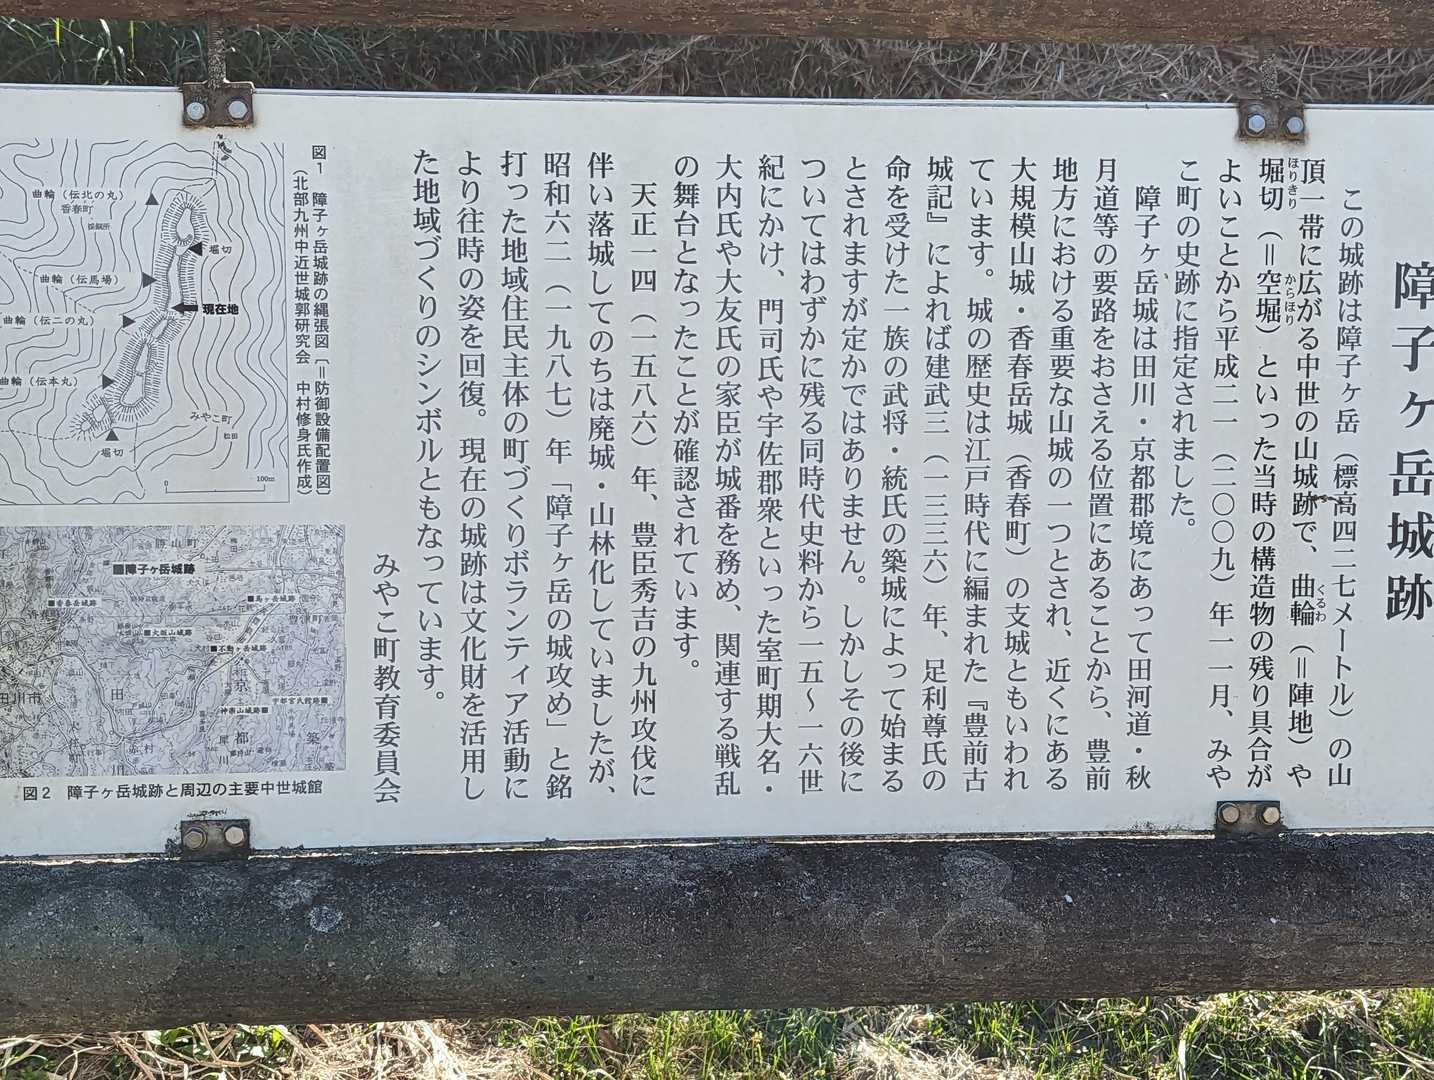 障子ヶ岳城跡
この城跡は障子ヶ岳（標高四二七メートル）の山
頂一帯に広がる中世の山城跡で、曲輪（＝陣地）や
くるわ
堀切（＝空堀）といった当時の構造物の残り具合が
ほりきり
からほり
よいことから平成二一（二〇〇九）年一一月、みや
こ町の史跡に指定されました。
障子ヶ岳城は田川・京都郡境にあって田河道・秋
月道等の要路をおさえる位置にあることから、豊前
地方における重要な山城の一つとされ、近くにある
大規模山城・香春岳城（香春町）の支城ともいわれ
ています。城の歴史は江戸時代に編まれた『豊前古
城記』によれば建武三（一三三六）年、足利尊氏の
命を受けた一族の武将・統氏の築城によって始まる
とされますが定かではありません。しかしその後に
ついてはわずかに残る同時代史料から一五～一六世
紀にかけ、門司氏や宇佐郡衆といった室町期大名・
大内氏や大友氏の家臣が城番を務め、関連する戦乱
の舞台となったことが確認されています。
天正一四（一五八六）年、豊臣秀吉の九州攻伐に
伴い落城してのちは廃城・山林化していましたが、
昭和六二（一九八七）年「障子ヶ岳の城攻め」と銘
打った地域住民主体の町づくりボランティア活動に
より往時の姿を回復。現在の城跡は文化財を活用し
た地域づくりのシンボルともなっています。
みやこ町教育委員会
図１ 障子ヶ岳城跡の縄張図〔＝防御設備配置図〕
（北部九州中近世城郭研究会 中村修身氏作成）
曲輪（伝北の丸）
香春町
採銅所
堀切
曲輪（伝馬場）
現在地
曲輪（伝二の丸）
曲輪（伝本丸）
みやこ町
松田
堀切
0
100m
勝山町
■障子ヶ岳城跡
■香春岳城跡
■馬ヶ岳城跡
■大坂山城跡
■不動ヶ岳城跡
宇都宮氏館跡■
神楽山城跡■
田川市
赤村
犀川
京都
築
図２ 障子ヶ岳城跡と周辺の主要中世城館